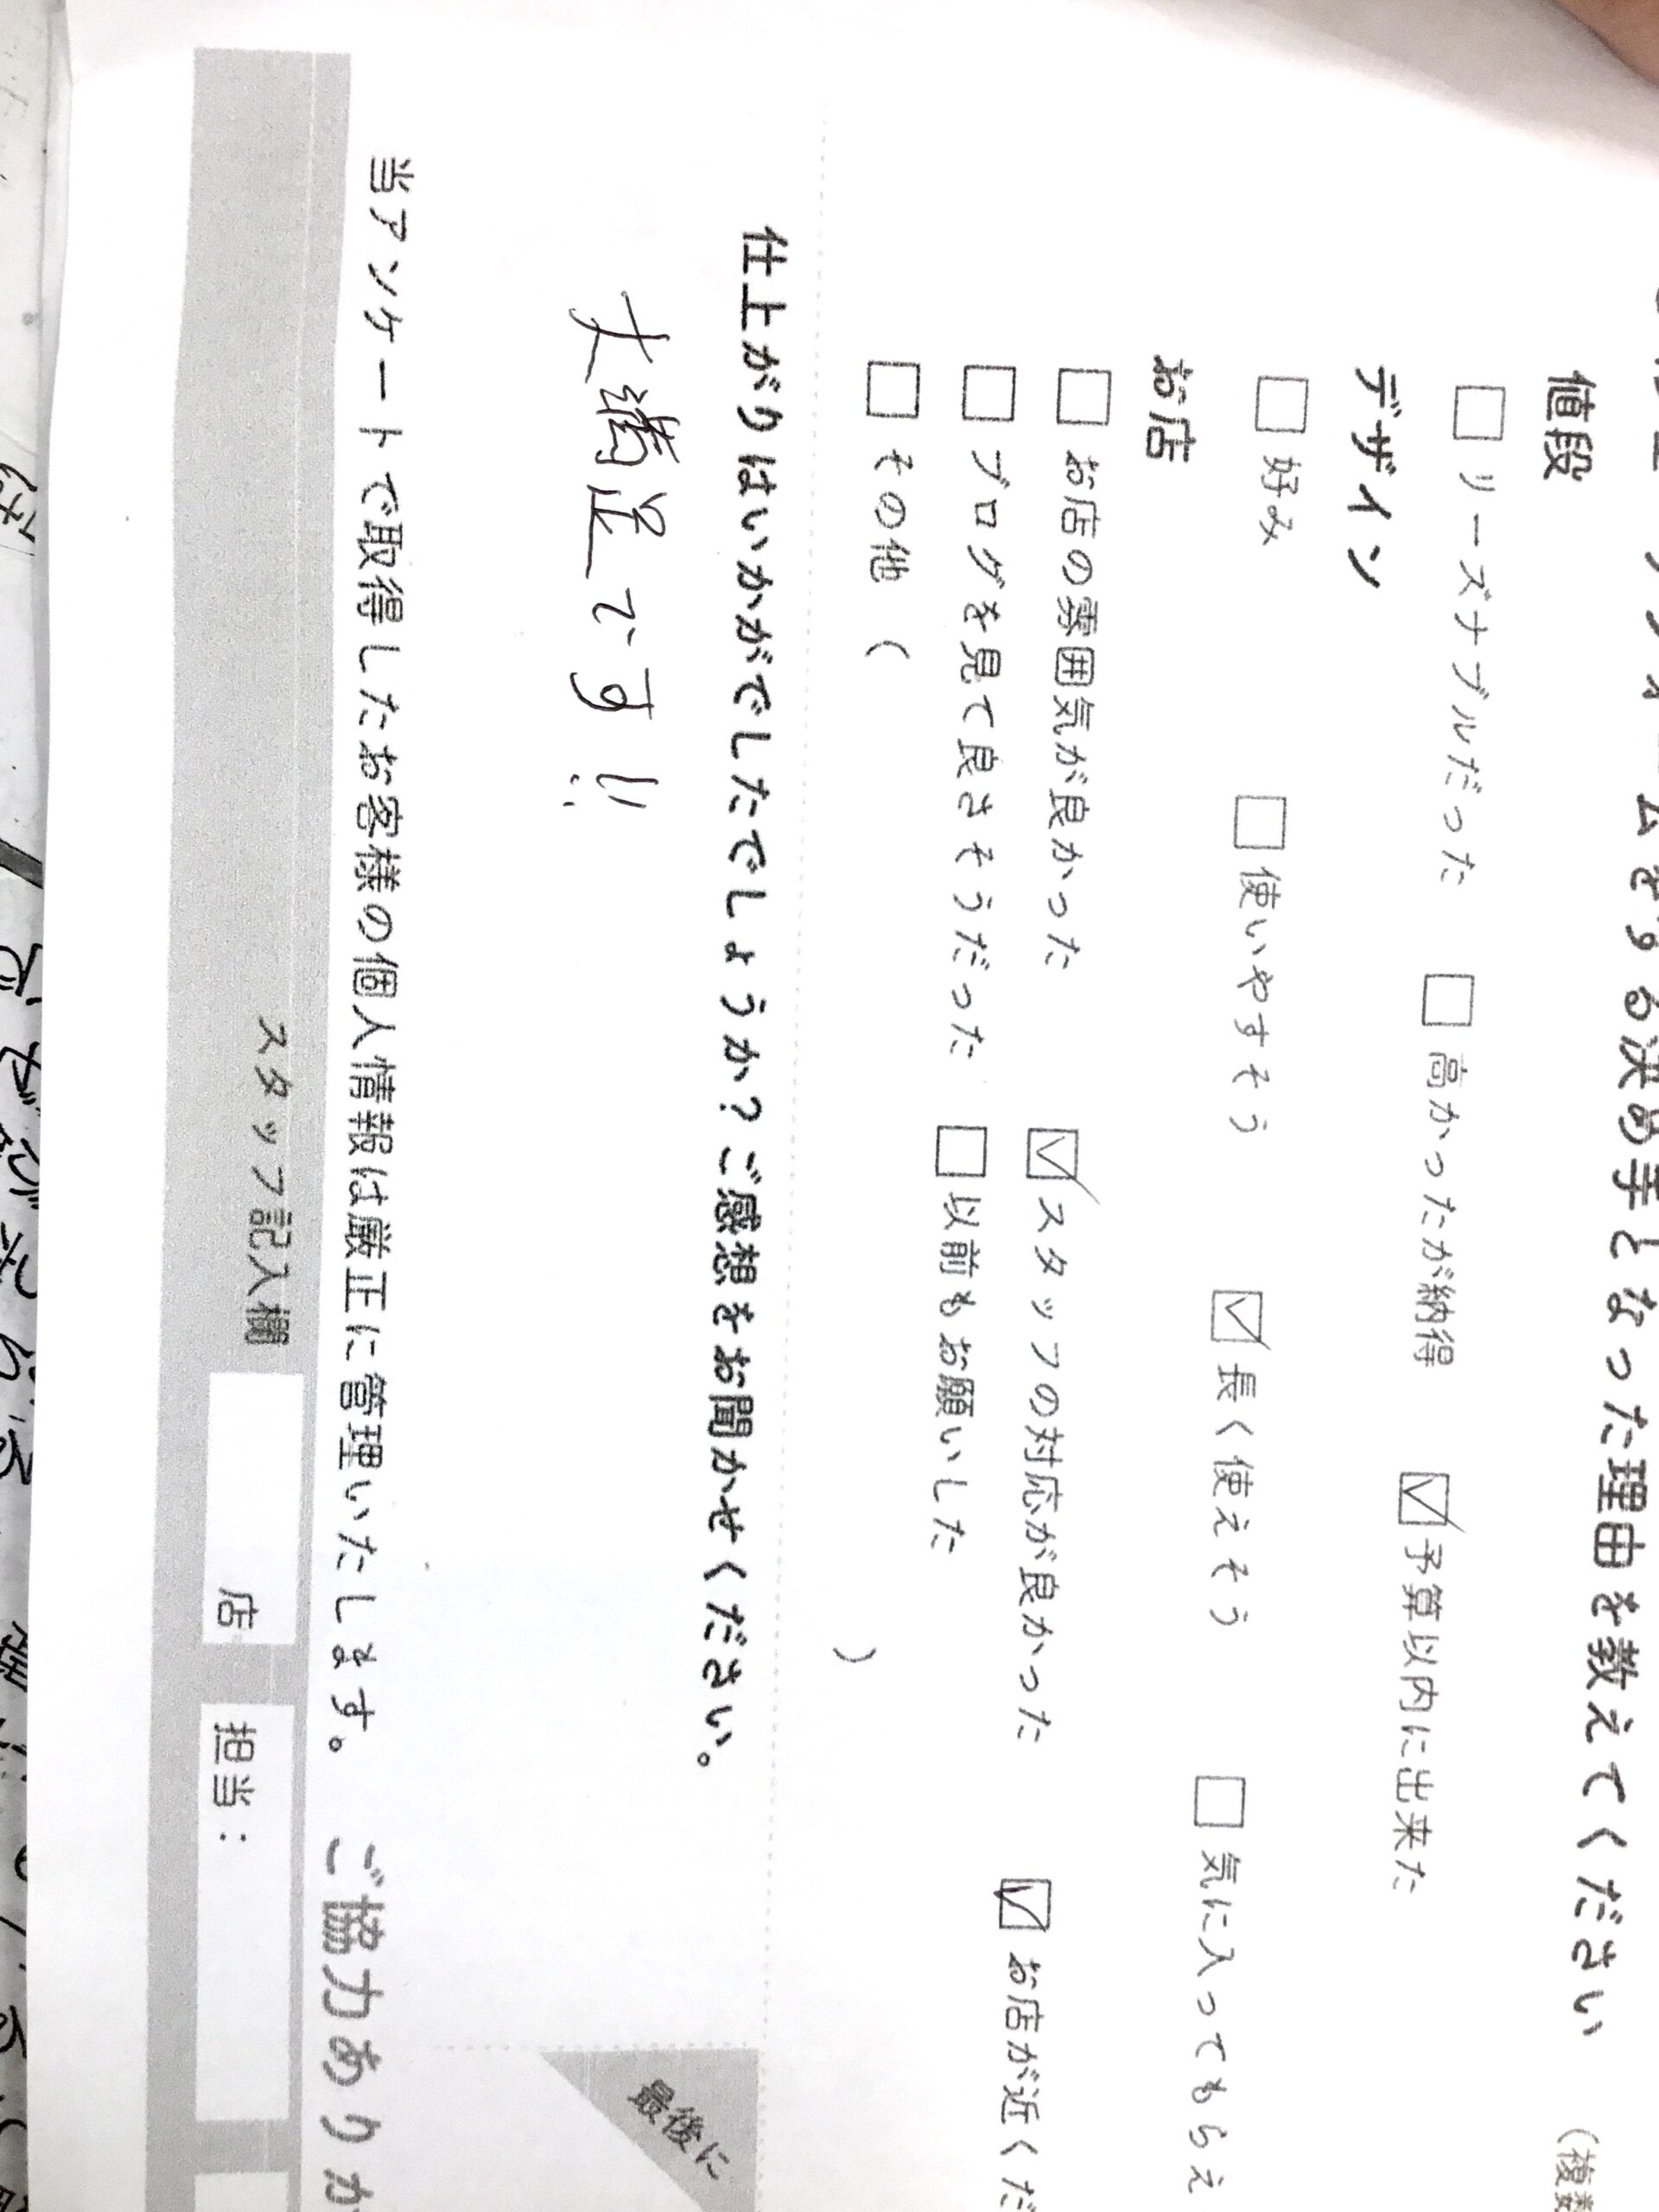 ムをする決め手となった理由を教えてください（複数
値段
□ リーズナブルだった □ 高かったが納得 ☑ 予算以内に出来た
デザイン
□ 好み □ 使いやすそう ☑ 長く使えそう □ 気に入ってもらえ
お店
□ お店の雰囲気が良かった ☑ スタッフの対応が良かった ☑ お店が近くだ
□ ブログを見て良さそうだった □ 以前もお願いした
□ その他（ ）
最後に
仕上がりはいかがでしたでしょうか？ご感想をお聞かせください。
大満足です!!
当アンケートで取得したお客様の個人情報は厳正に管理いたします。 ご協力ありが
スタッフ記入欄 店 担当：